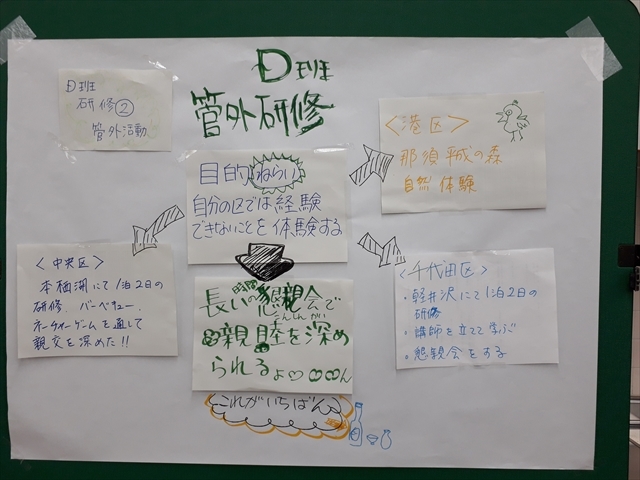 D班
管外研修
D班
研修②
管外活動
目的 ねらい
自分の区では経験
できないことを体験する
<港区>
那須平成の森
自然体験
<中央区>
本栖湖にて1泊2日の
研修.バーベキュー.
ネーチャーゲームを通して
親交を深めた!!
<千代田区>
・軽井沢にて1泊2日の
研修
・講師を立てて学ぶ
・懇親会をする
時間
長いの懇親会で
こんしんかい
親睦を深め
られるよ
ん
これがいちばん